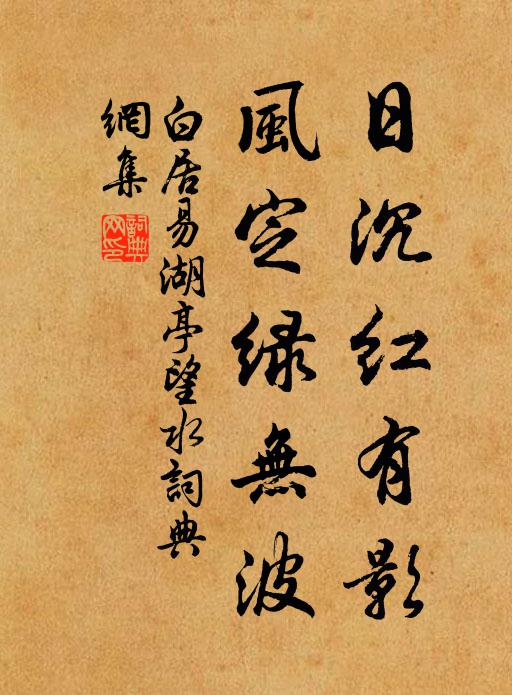 日沉红有影
風定绿無波
白居易湖亭望水詞典
網集
詞典
网印